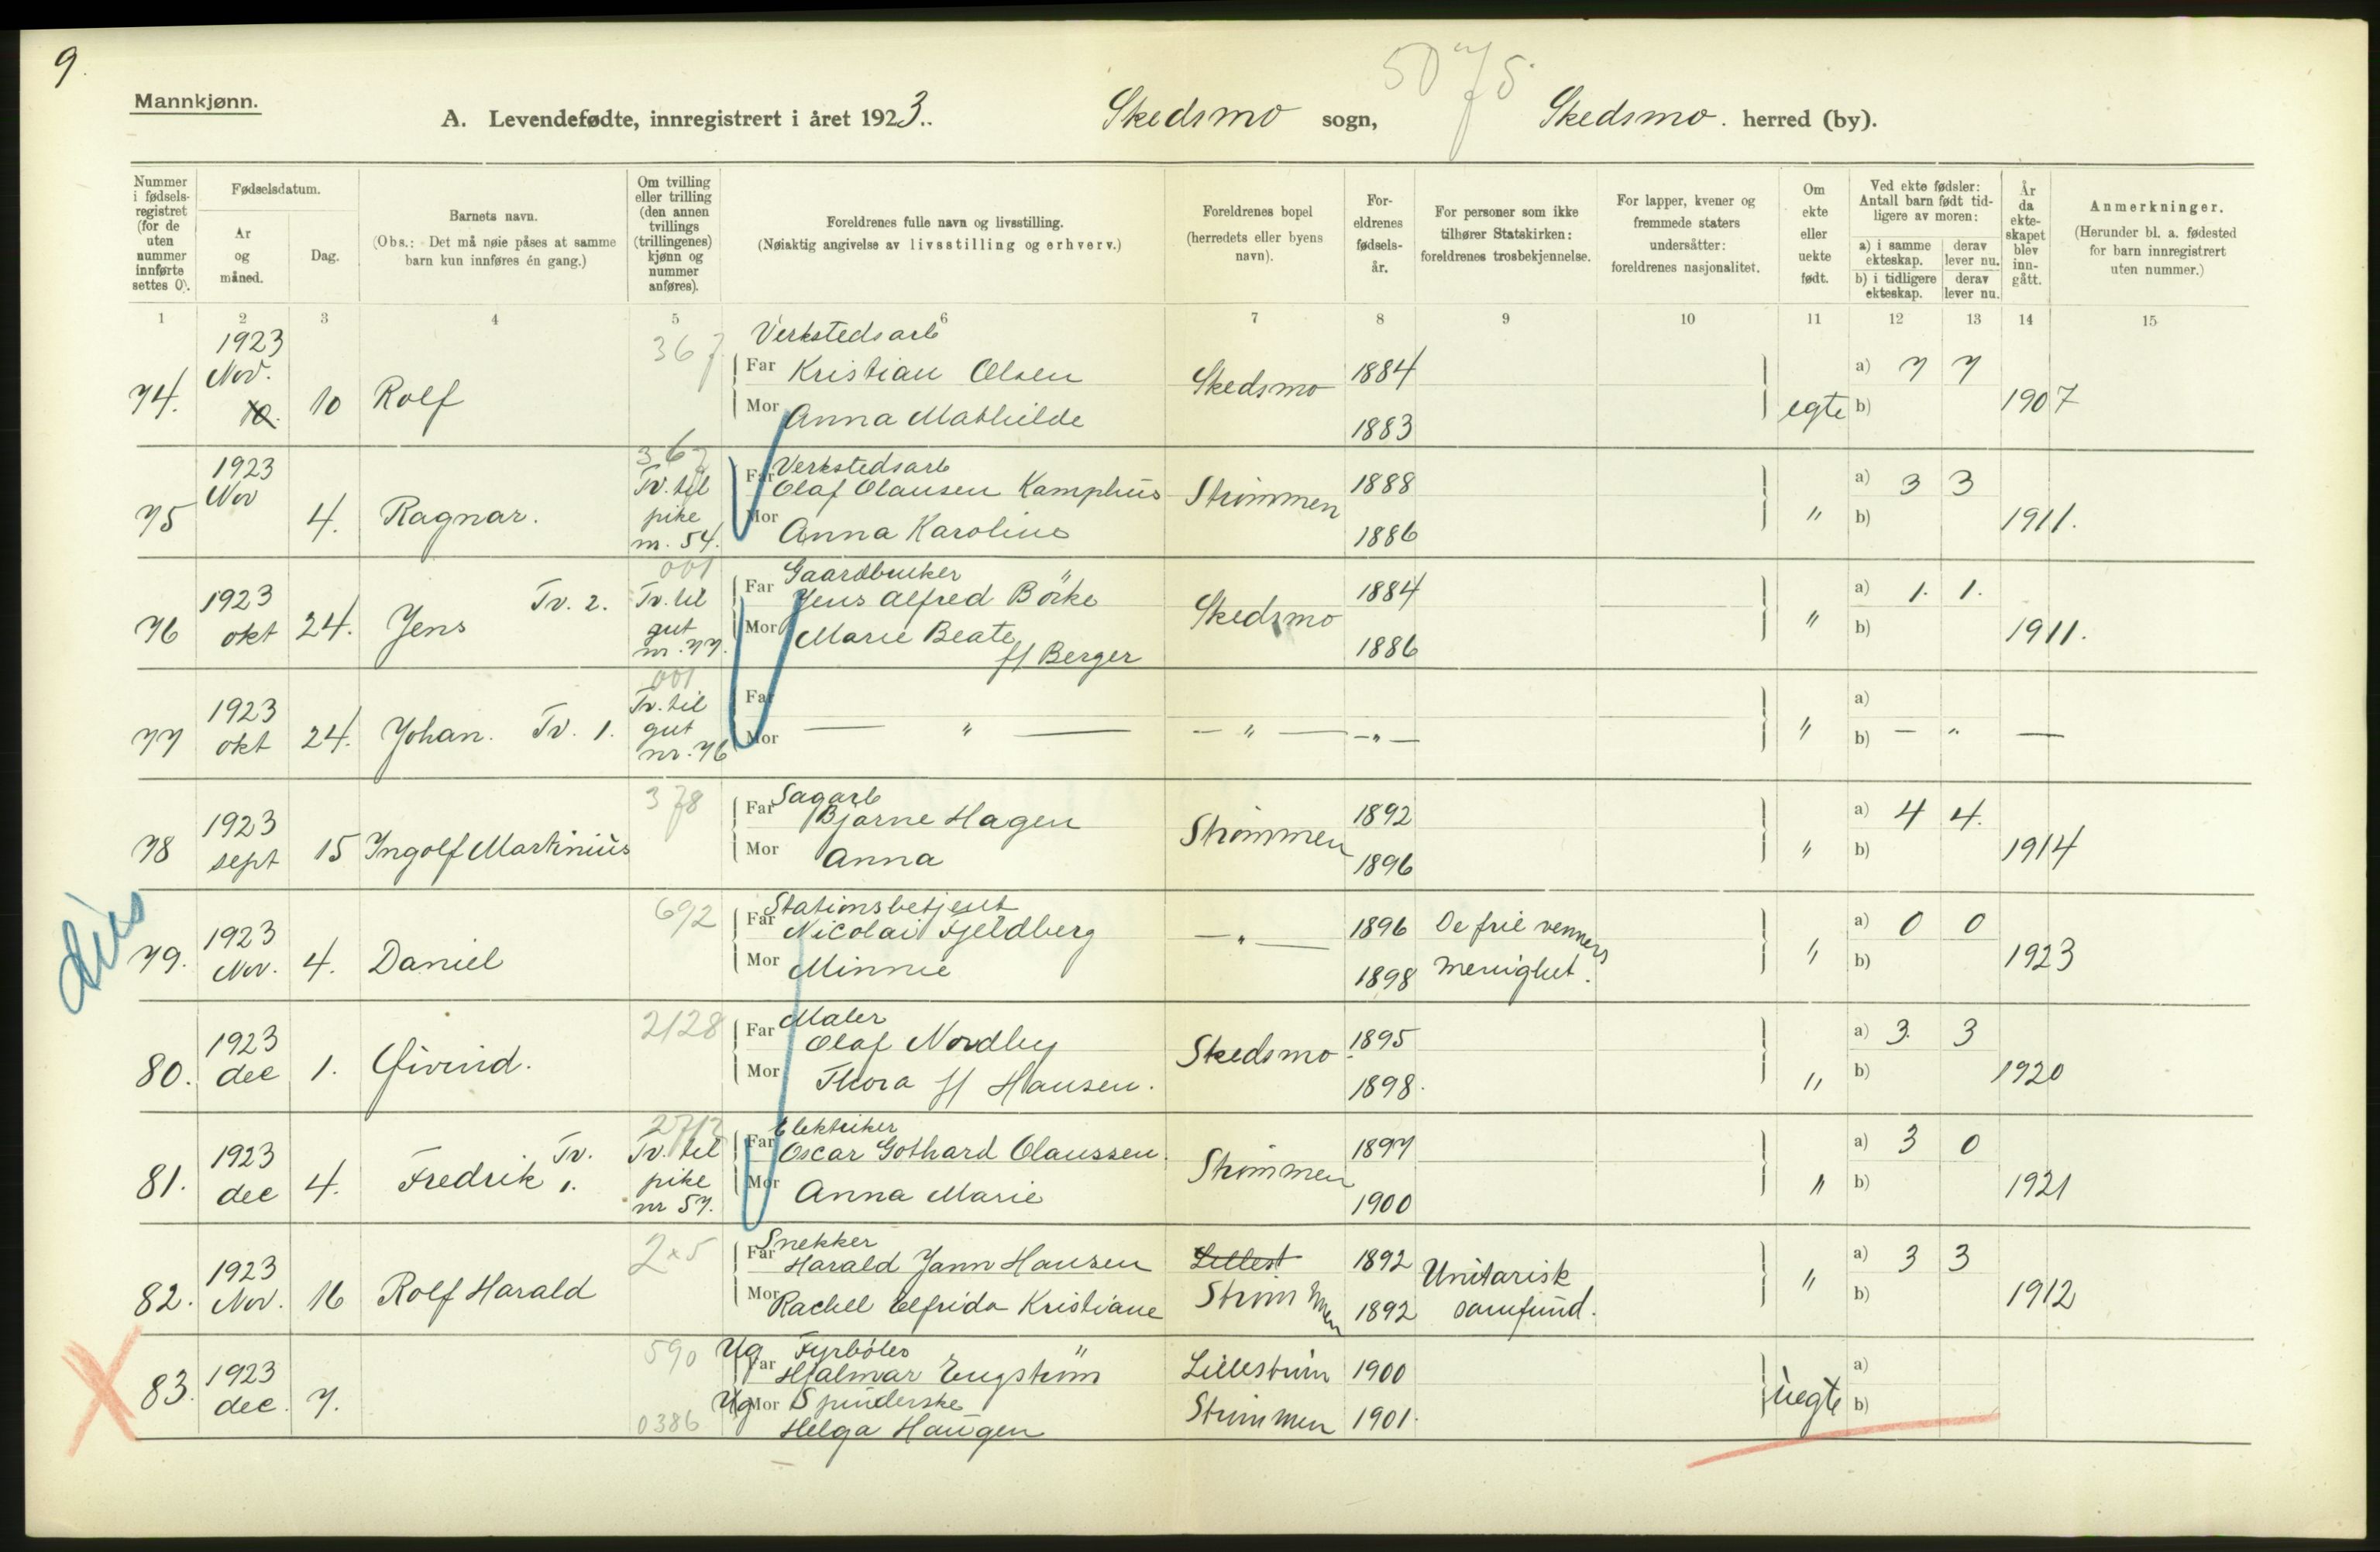 9.
Mannkjønn.
A. Levendefødte, innregistrert i året 1923.
Skedsmo sogn,
5075
Skedsmo. herred (by).
Nummer i fødsels-registret (for de uten nummer innførte settes 0).
Fødselsdatum.
År og måned.
Dag.
Barnets navn.
(Obs.: Det må nøie påses at samme barn kun innføres én gang.)
Om tvilling eller trilling (den annen tvillings (trillingenes) kjønn og nummer anføres).
Foreldrenes fulle navn og livsstilling.
(Nøiaktig angivelse av livsstilling og erhverv.)
Foreldrenes bopel (herredets eller byens navn).
For-eldrenes fødsels-år.
For personer som ikke tilhører Statskirken: foreldrenes trosbekjennelse.
For lapper, kvener og fremmede staters undersåtter: foreldrenes nasjonalitet.
Om ekte eller uekte født.
Ved ekte fødsler: Antall barn født tid-ligere av moren:
a) i samme ekteskap.
derav lever nu.
b) i tidligere ekteskap.
derav lever nu.
År da ekte-skapet blev inn-gått.
Anmerkninger.
(Herunder bl. a. fødested for barn innregistrert uten nummer.)
1 2 3 4 5 6 7 8 9 10 11 12 13 14 15
74. 1923 Nov. 10. 10 Rolf 367
Verkstedsarb
Far Kristian Olsen Skedsmo 1884 a) 7 7
Mor Anna Mathilde 1883 egte b) 1907
75 1923 Nov 4. Ragnar. 367 Tv. til pike nr. 54.
Verkstedsarb
Far Olaf Olausen Kamphus Strømmen 1888 a) 3 3
Mor Anna Karoline 1886 " b) 1911.
76 1923 okt 24. Jens Tv. 2. 001 Tv. til gut nr. 77.
Gaardbruker
Far Jens Alfred Böcke Skedsmo 1884 a) 1. 1.
Mor Marie Beate 1886 " b) 1911.
f/ Berger
77 1923 okt 24. Johan. Tv. 1. 001 Tv. til gut nr. 76
Far a)
Mor — " — — " — — " — " b) — " —
78 1923 sept 15 Ingolf Martinius 378
Sagarb
Far Bjarne Hagen Strømmen 1892 a) 4 4.
Mor Anna 1896 " b) 1914
79. 1923 Nov. 4. Daniel 692
Stationsbetjent
Far Nicolai Fjeldberg — " — 1896 De frie venners a) 0 0
Mor Minnie 1898 menighet. " b) 1923
80. 1923 dec 1. Øivind. 2128
Maler
Far Olaf Nordby Skedsmo 1895 a) 3. 3
Mor Thora f/ Hansen. 1898. " b) 1920
81. 1923 dec 4. Fredrik Tv. 1. Tv. til pike nr 57.
Elektriker
Far Oscar Gothard Olaussen. Strømmen 1897 a) 3 0
Mor Anna Marie 1900 " b) 1921
82. 1923 Nov. 16 Rolf Harald 2x5
Snekker
Far Harald Jann Hansen Lillest 1892 Unitarisk a) 3 3
Mor Rachel Elfrida Kristiane Strømmen 1892 samfund. " b) 1912
83. 1923 dec. 7. 590 0386
Ug Fyrbøter
Far Hjalmar Engström Lillestrøm 1900 a)
Ug Mor Spinderske uegte b)
Helga Haugen Strømmen 1901.